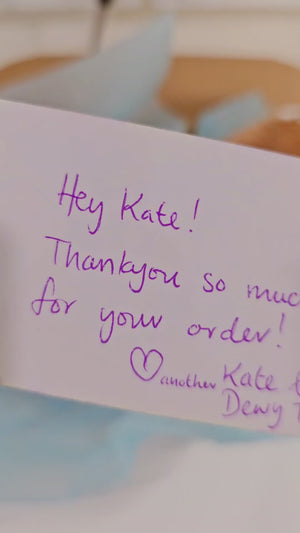 Hey Kate!
Thankyou so muc
for your order!
another Kate
Dewy